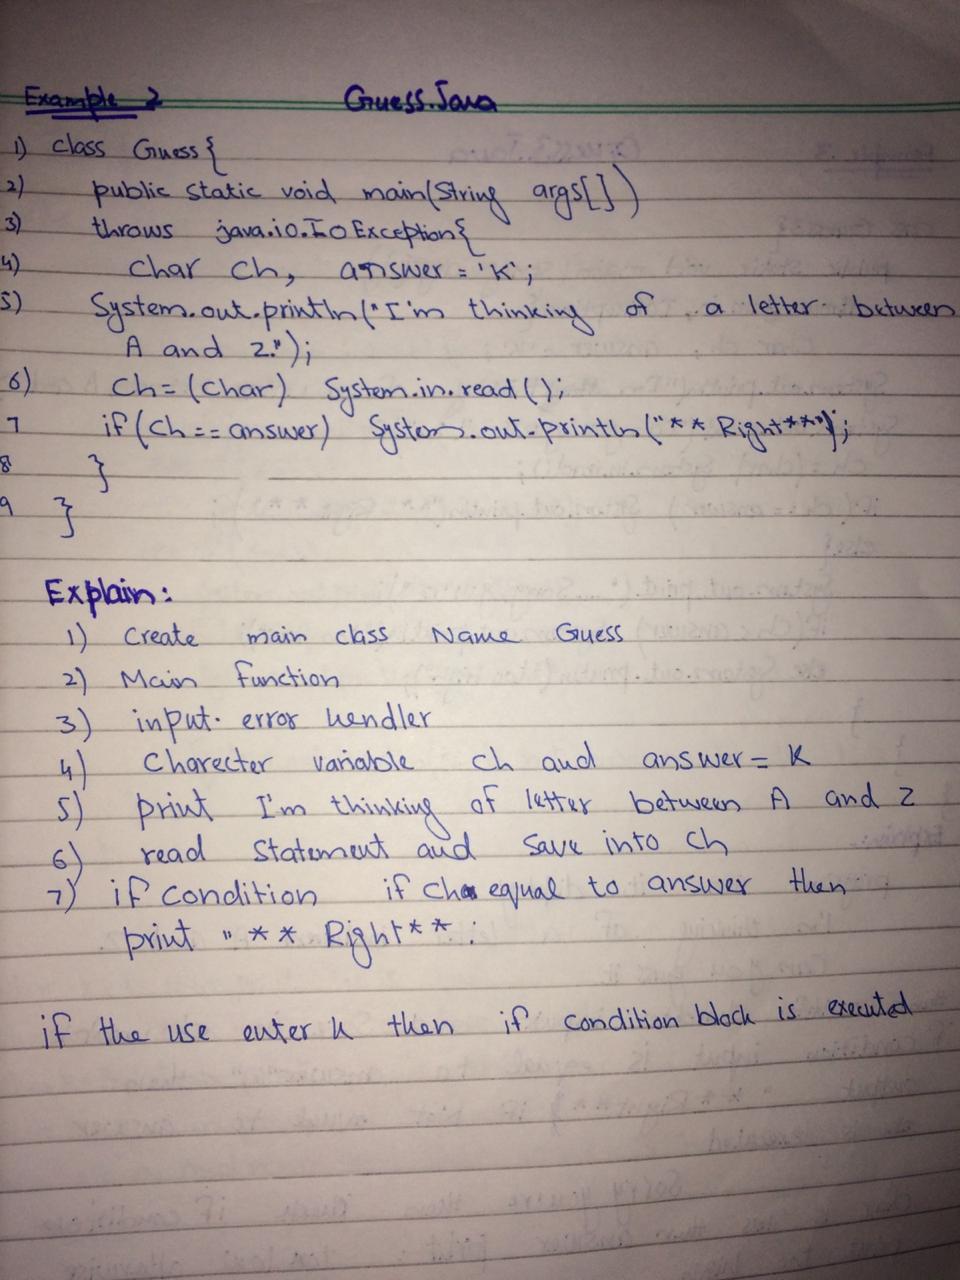 Example 2 Guess.Java
1) class Guess{
2) public static void main(String args[])
3) throws java.io.IoException{
4) char ch, answer = 'K';
5) System.out.println("I'm thinking of a letter between
A and Z.");
6) Ch = (char) System.in.read();
7 if(ch == answer) System.out.println("** Right**");
8 }
9 }
Explain:
1) create main class Name Guess
2) Main function
3) input error hendler
4) Charecter variable ch and answer = K
5) print I'm thinking of letter between A and Z
6) read statement and save into ch
7) if condition if ch equal to answer then
print "** Right** :
if the use enter k then if condition block is executed